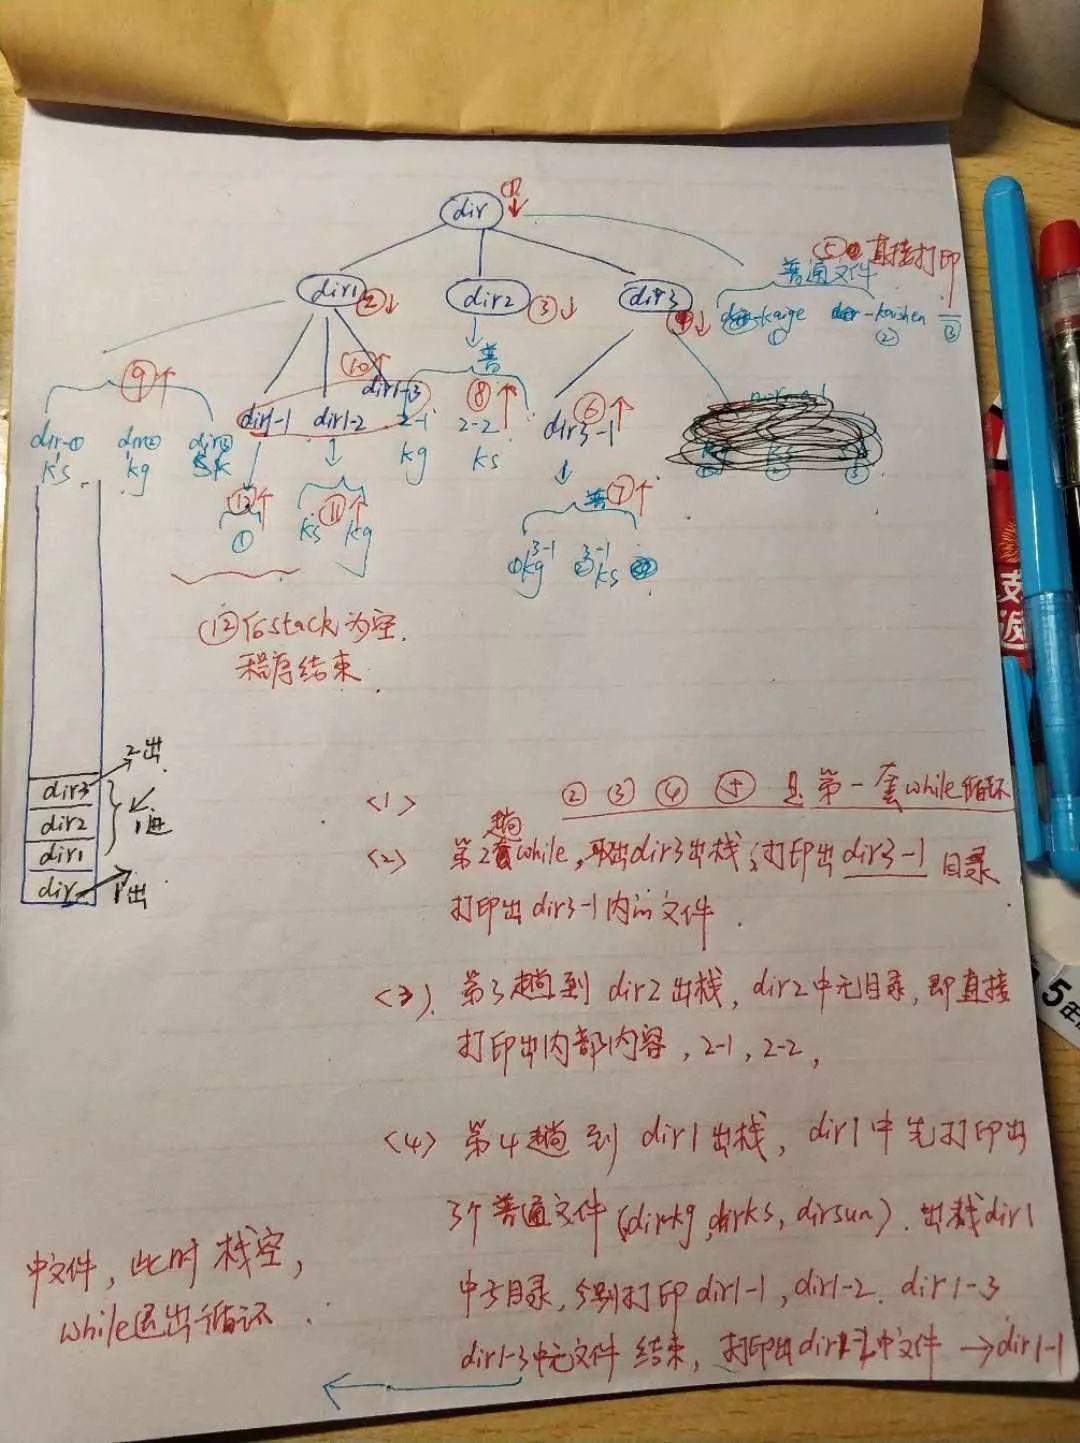 dir ① ↓
⑤ 直接打印
普通文件
dir1 ② ↓ dir2 ③ ↓ dir3 ④ ↓
-kaige -kaishen
① ② ③
⑨ ↑ ⑩ ↑ 普
dir1-1 dir1-2 dir1-3 2-1 ⑧ 2-2 ↑ dir3-1 ⑥ ↑
kg ks
dir① dir② dir③
ks kg
⑫ ↑ ks ⑪ ↑ kg 普 ⑦ ↑
① ① 3-1 kg ② 3-1 ks
⑫后stack为空.
程序结束
2出
dir3
dir2 1进
dir1
dir 1出
<1> ② ③ ④ ⑤ 是第一套while循环
<2> 第2趟while, 取出dir3出栈;打印出dir3-1目录
打印出dir3-1内的文件.
<3>. 第3趟到dir2出栈, dir2中无目录, 即直接
打印出内部内容, 2-1, 2-2,
<4> 第4趟到dir1出栈, dir1中先打印出
3个普通文件(dirkg, dirks, dirsun). 出栈dir1
中子目录, 分别打印dir1-1, dir1-2. dir1-3
dir1-3中无文件结束, 打印出dir1-2中文件 → dir1-1
中文件, 此时栈空,
while退出循环.
支
5年